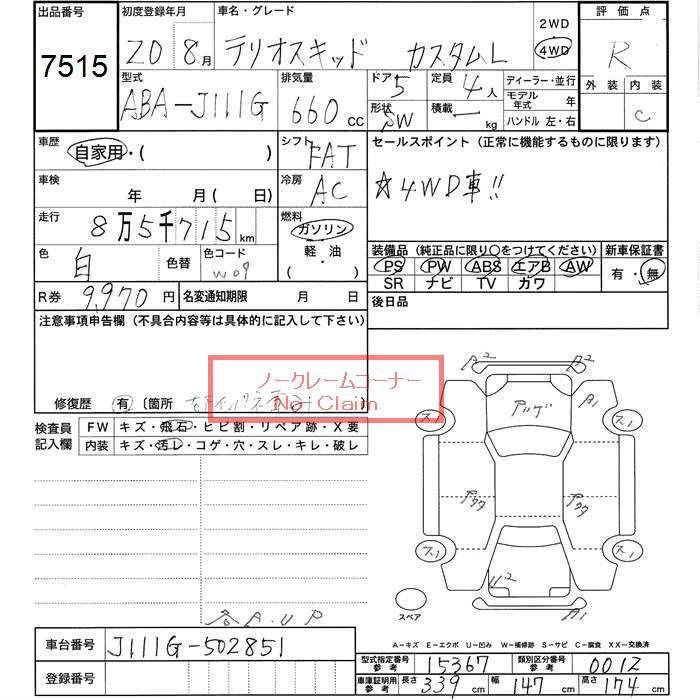 出品番号 初度登録年月 車名・グレード 評価点
7515 20 8月 テリオスキッド カスタムL 2WD 4WD R
型式 排気量 ドア 5 定員 4人 ディーラー・並行 外装 内装
ABA-J111G 660cc 形状 SW 積載 ー kg モデル年式 年 C
ハンドル 左・右
車歴 自家用・( ) シフト FAT セールスポイント(正常に機能するものに限ります)
車検 年 月(日) 冷房 AC ☆4WD車!!
走行 8万5千715km 燃料 ガソリン
軽・油
( )
色 白 色替 色コード W09 装備品(純正品に限り○をつけてください) 新車保証書
PS PW ABS エアB AW 有・無
SR ナビ TV カワ
R券 9,970円 名変通知期限 月 日 後日品
注意事項申告欄(不具合内容等は具体的に記入して下さい)
ノークレームコーナー
No Claim
修復歴 有〔箇所
検査員記入欄 FW キズ・飛石・ヒビ割・リペア跡・X要
内装 キズ・汚レ・コゲ・穴・スレ・キレ・破レ
A2 A2
ス1 アゲ A1 ス1
アクク アクク
ス1 ス1
U2 A2
スペア
各A.UP
A-キズ E-エクボ U-凹み W-補修跡 S-サビ C-腐食 XX-交換済
車台番号 J111G-502851
登録番号
型式指定番号 参考 15367 類別区分番号 参考 0012
車庫証明用 参考 長さ 339cm 幅 147cm 高さ 174cm